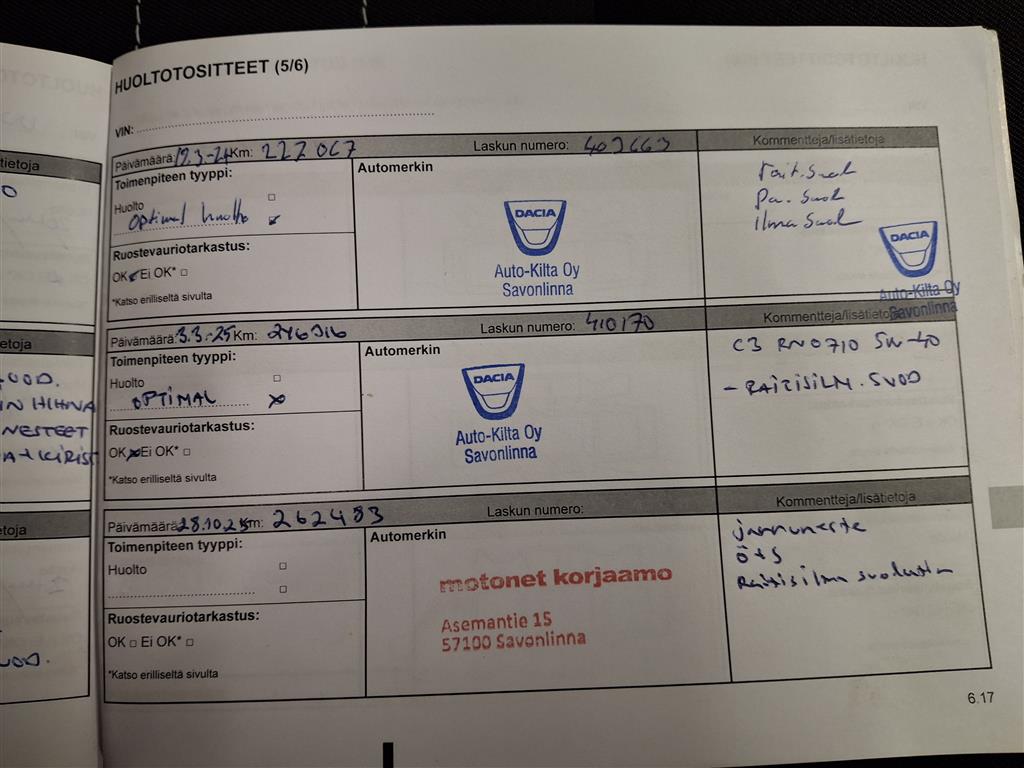 HUOLTOTOSITTEET (5/6)
VIN:
Päivämäärä: 19.3.-24 Km: 222 067 Laskun numero: 409663 Kommentteja/lisätietoja
Toimenpiteen tyyppi:
Automerkin
Huolto
Optimal huolto
Ruostevauriotarkastus:
OK Ei OK*
*Katso erilliseltä sivulta
DACIA
Auto-Kilta Oy
Savonlinna
Rait. Suod
Pa. Suod
Ilma Suod
DACIA
Auto-Kilta Oy
Savonlinna
Päivämäärä: 3.3.-25 Km: 246316 Laskun numero: 410170 Kommentteja/lisätietoja
Toimenpiteen tyyppi:
Automerkin
Huolto
OPTIMAL
Ruostevauriotarkastus:
OK Ei OK*
*Katso erilliseltä sivulta
DACIA
Auto-Kilta Oy
Savonlinna
C3 RN0710 5W-40
- RAITISILM. SUOD
Päivämäärä: 28.10.25 Km: 262483 Laskun numero: Kommentteja/lisätietoja
Toimenpiteen tyyppi:
Automerkin
Huolto
Ruostevauriotarkastus:
OK Ei OK*
*Katso erilliseltä sivulta
motonet korjaamo
Asemantie 15
57100 Savonlinna
Jarruneste
Ö+S
Raitisilma suodatin
6.17
tietoja
etoja
IN HIHNA
NESTEET
etoja